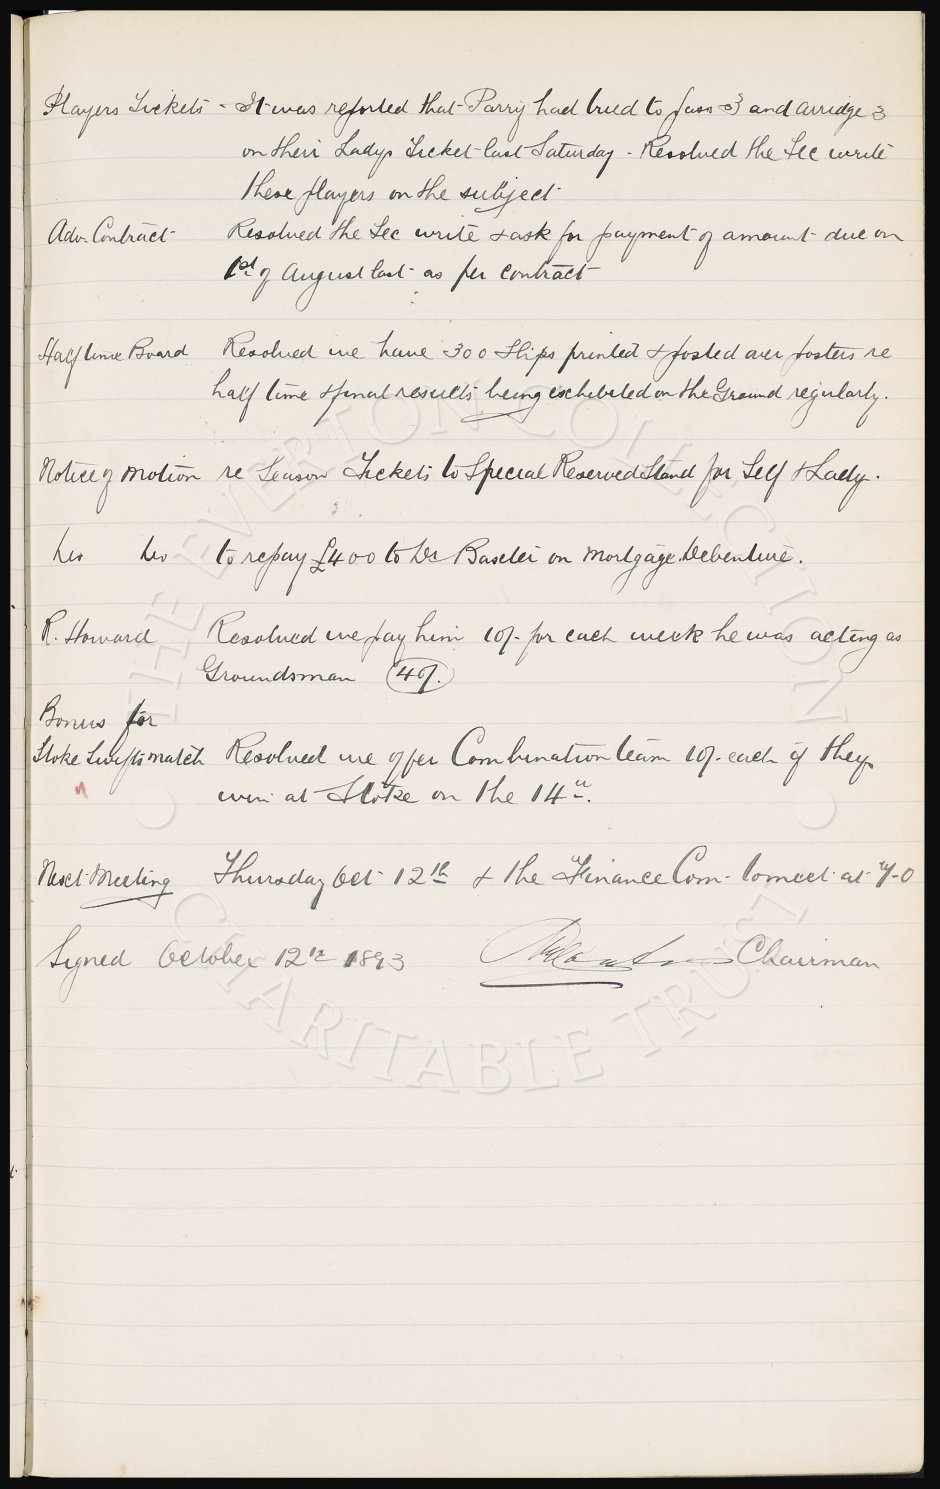 Players Tickets - It was reported that Parry had tried to pass 3 and Arridge 3
on their Ladys Ticket last Saturday - Resolved the Sec write
these players on the subject
Adv. Contract Resolved the Sec write & ask for payment of amount due on
1st of August last as per contract
Half time Board Resolved we have 300 slips printed & posted over posters re
half time & final results being exhibited on the Ground regularly.
Notice of Motion re Season Tickets to Special Reserved Stand for Self & Lady.
Do Do to repay £400 to Dr Baxter on Mortgage Debenture.
R. Howard Resolved we pay him 10/- for each week he was acting as
Groundsman 40/-
Bonus for
Stoke Swifts match Resolved we offer Combination team 10/- each if they
win at Stoke on the 14th.
Next Meeting Thursday Oct 12th & the Finance Com. to meet at 7-0
Signed October 12th 1893 Chairman
THE EVERTON COLLECTION
CHARITABLE TRUST